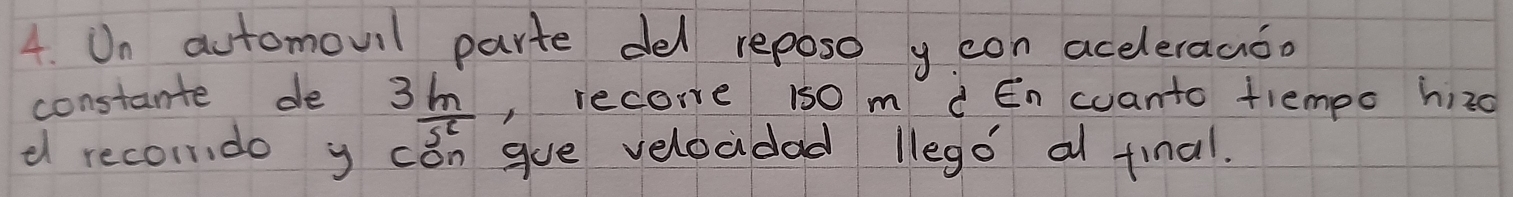 4. Un automovil parte del reposo y con aceleración
constante de 3 m/s², recorre 150 m ¿ En cuanto tiempo hizo
el recorrido y con que velocidad llegó al final.